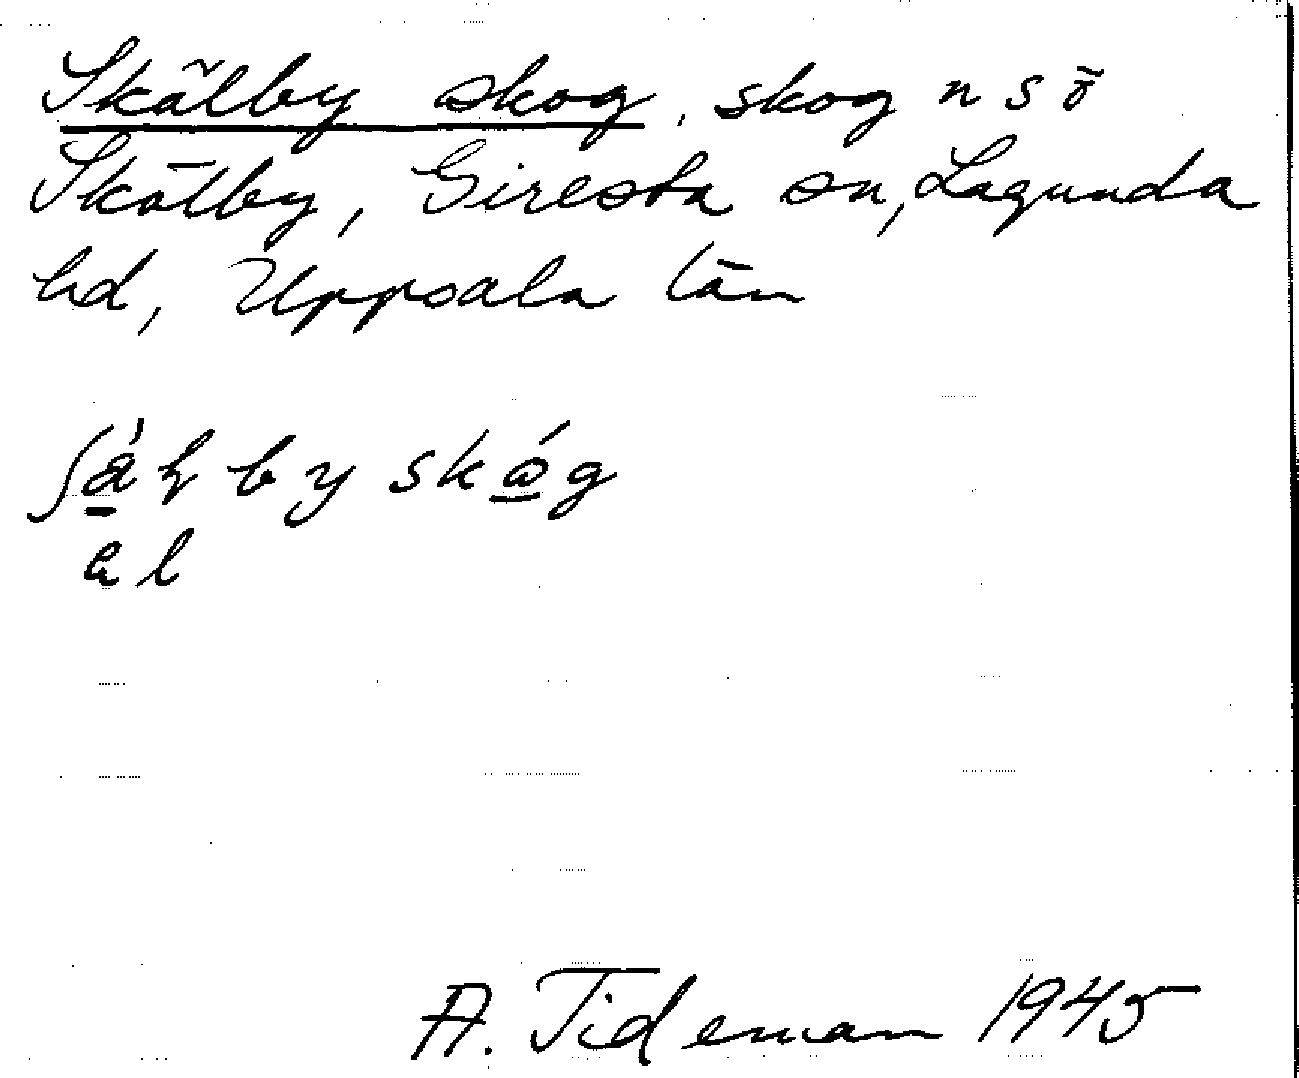 Skälby skog, skog n s ö
Skälby, Giresta sn, Lagunda
hd, Uppsala län
A. Tideman 1945